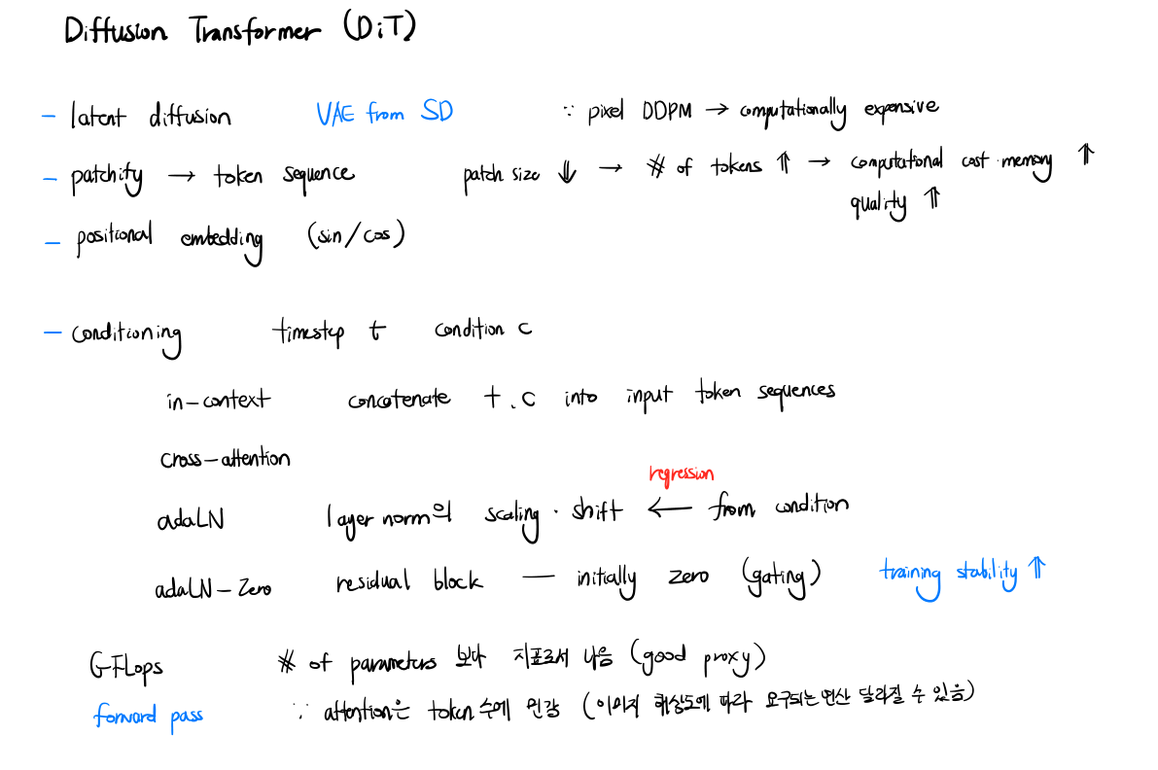 Diffusion Transformer (DiT)
- latent diffusion VAE from SD ∵ pixel DDPM → computationally expensive
- patchify → token sequence patch size ⇓ → # of tokens ⇑ → computational cost · memory ⇑
quality ⇑
- positional embedding (sin/cos)
- conditioning timestep t condition c
in-context concatenate t, c into input token sequences
cross-attention
regression
adaLN layer norm의 scaling · shift ← from condition
adaLN-Zero residual block — initially zero (gating) training stability ⇑
G-FLops # of parameters 보다 지표로서 나음 (good proxy)
forward pass ∵ attention은 token 수에 민감 (이미지 해상도에 따라 요구되는 연산 달라질 수 있음)